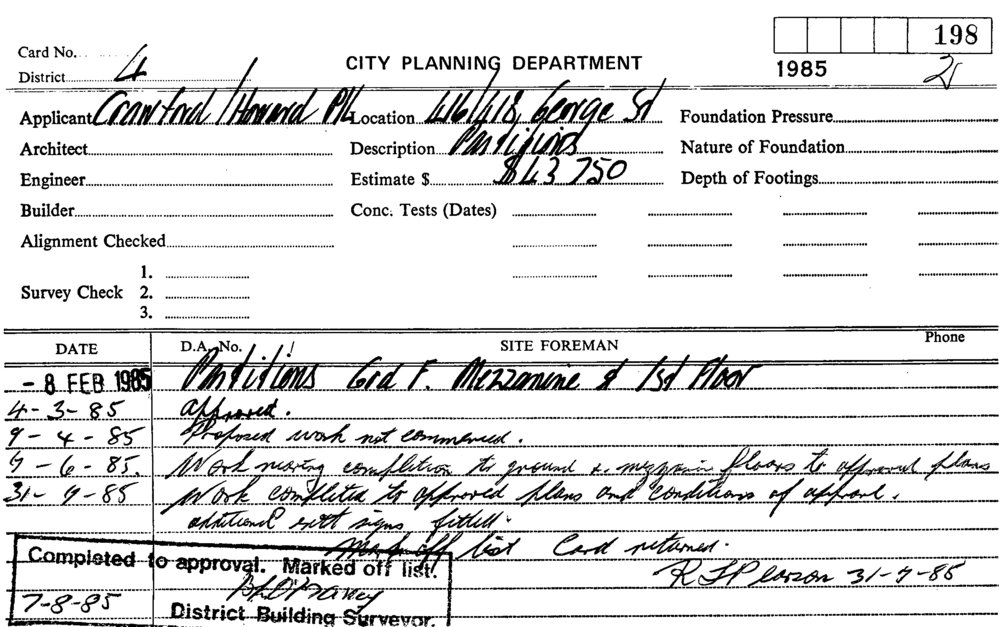 198
Card No.
1985 2
District 4
CITY PLANNING DEPARTMENT
Applicant Crawford / Howard P/L Location 416/418 George St Foundation Pressure
Architect Description Partitions Nature of Foundation
Engineer Estimate $ $43 750 Depth of Footings
Builder Conc. Tests (Dates)
Alignment Checked
1.
Survey Check 2.
3.
DATE D.A. No. / SITE FOREMAN Phone
- 8 FEB 1985 Partitions Grd F. Mezzanine & 1st Floor
4-3-85 approved.
9-4-85 Proposed work not commenced.
7-6-85. Work nearing completion to ground & mezzanin floors to approval plans
31-7-85 Work completed to approved plans and conditions of approval.
additional exit signs fitted.
Mark off list Card returned.
R J Pearson 31-7-85
Completed to approval. Marked off list.
7-8-85
District Building Surveyor.